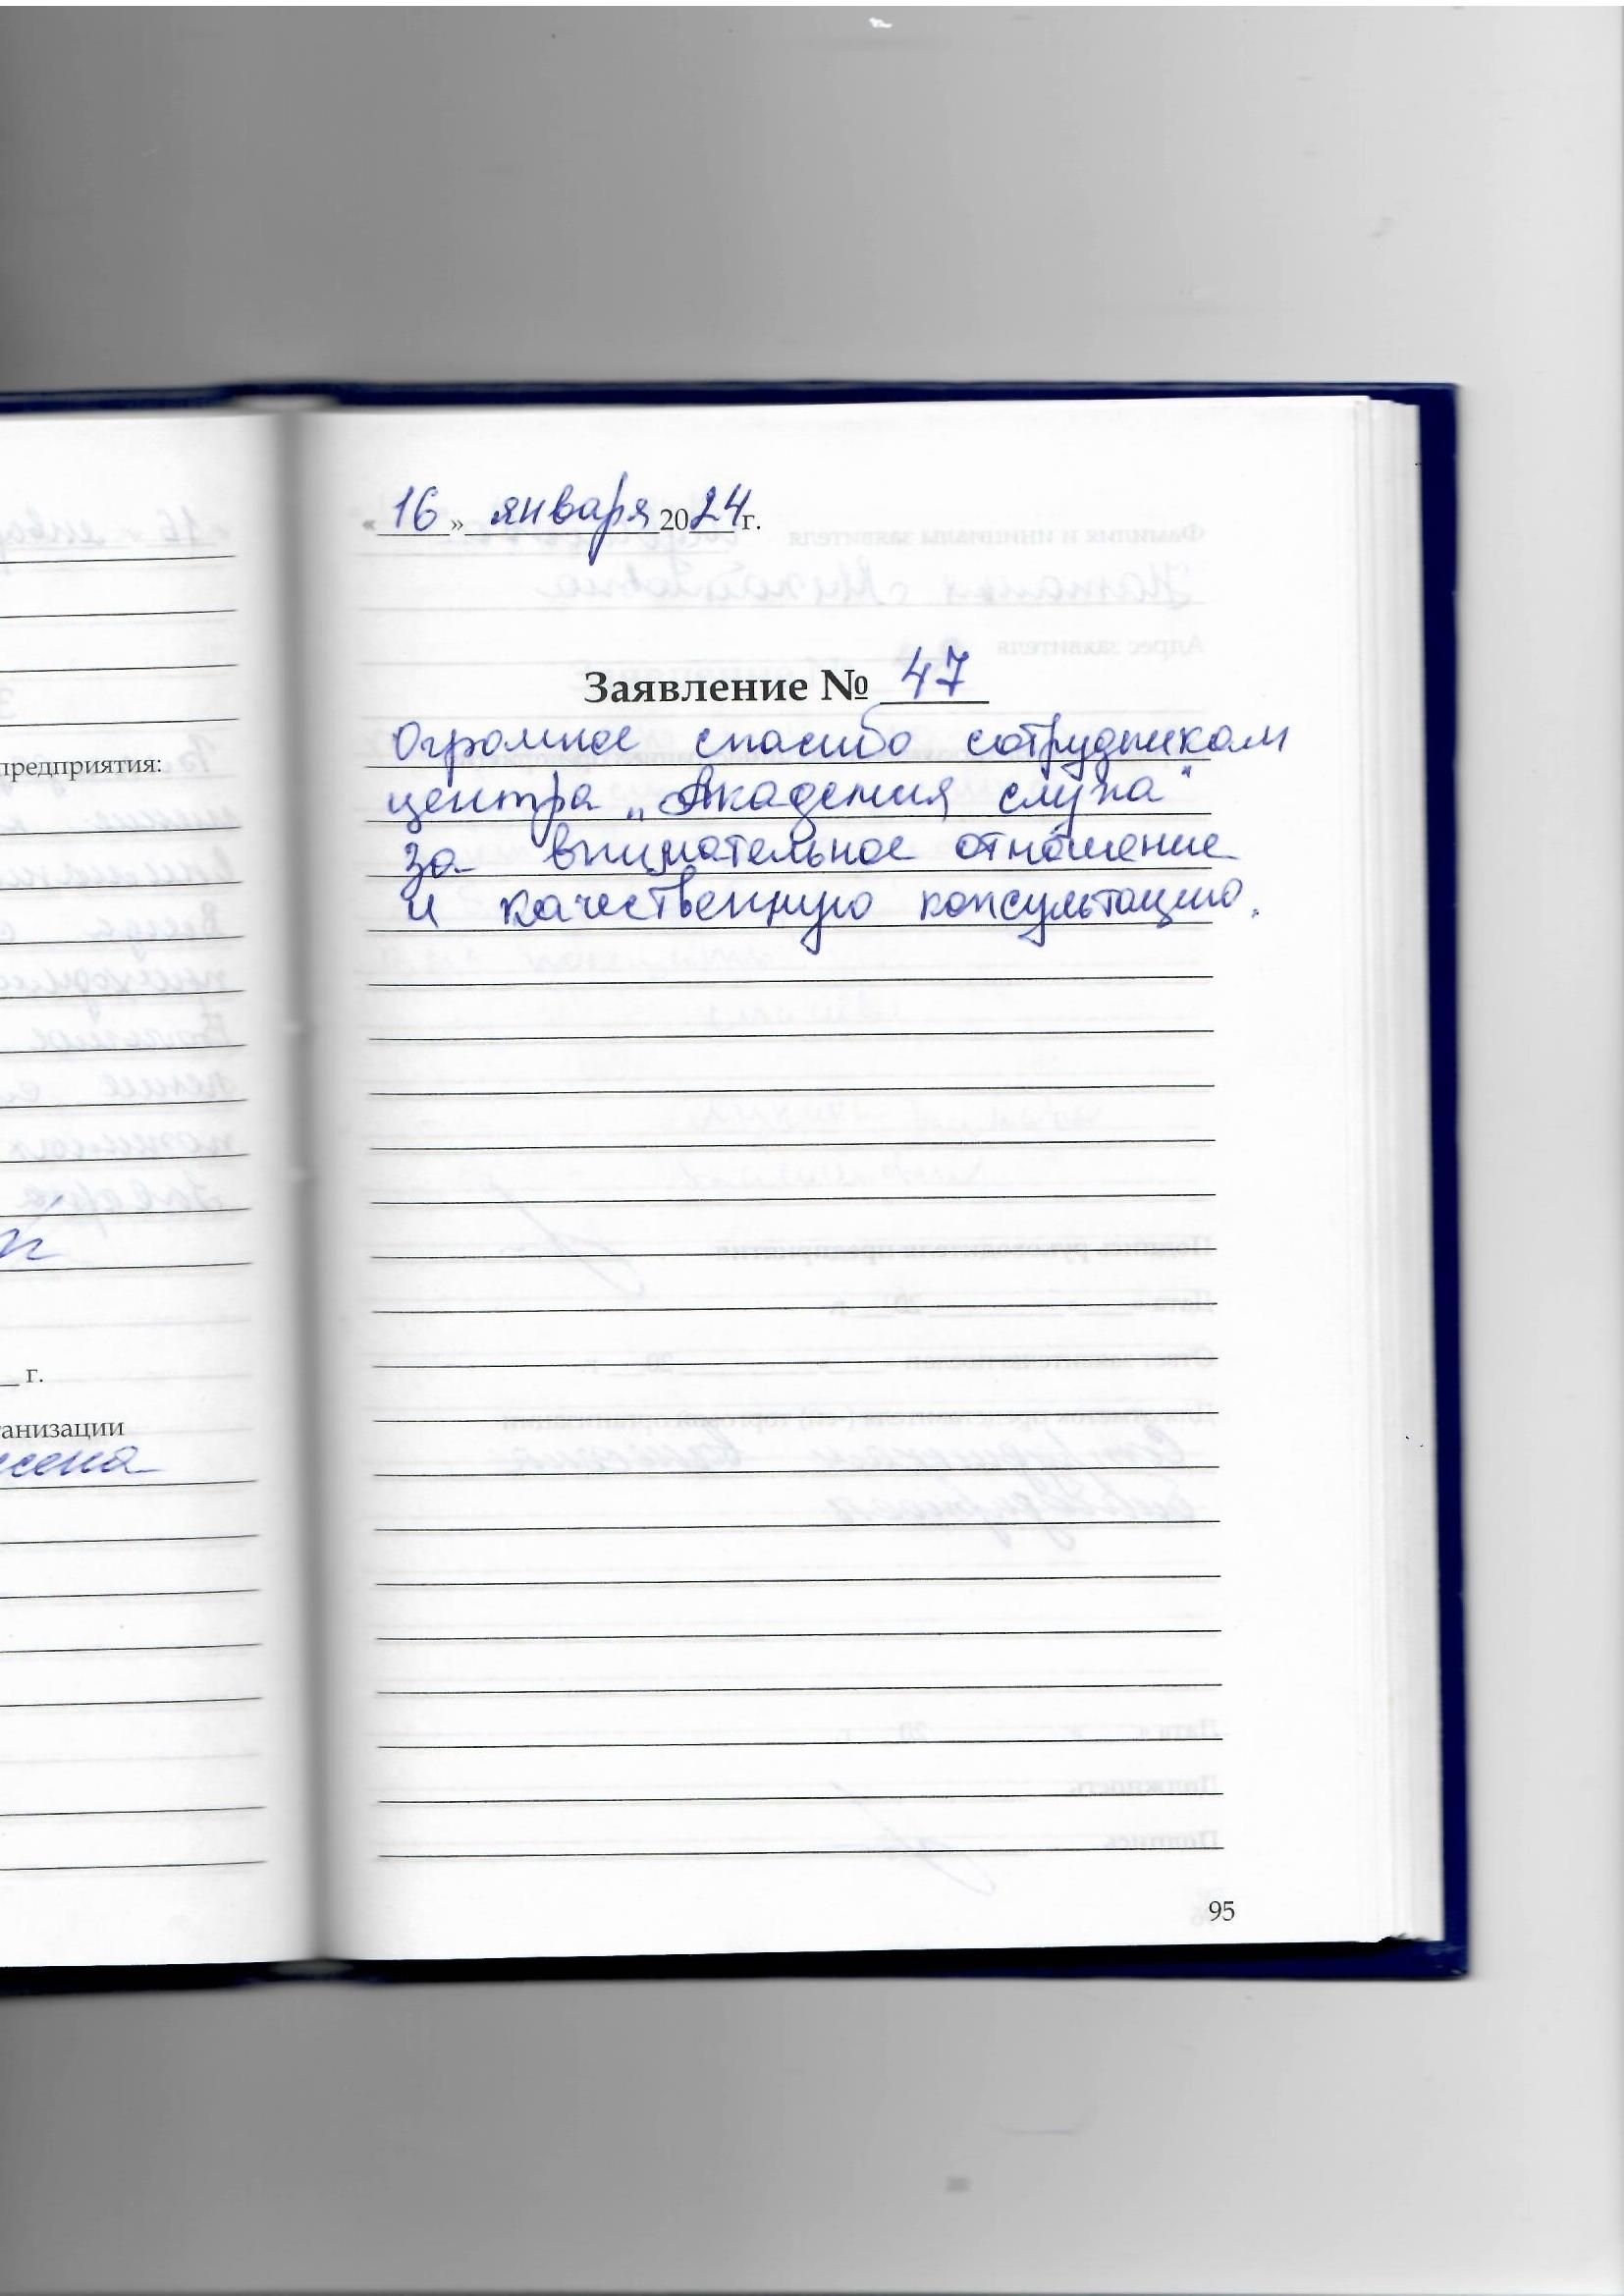 «16» января 2024 г.
Заявление № 47
Огромное спасибо сотрудникам
центра „Академия слуха"
за внимательное отношение
и качественную консультацию.
95
предприятия:
г.